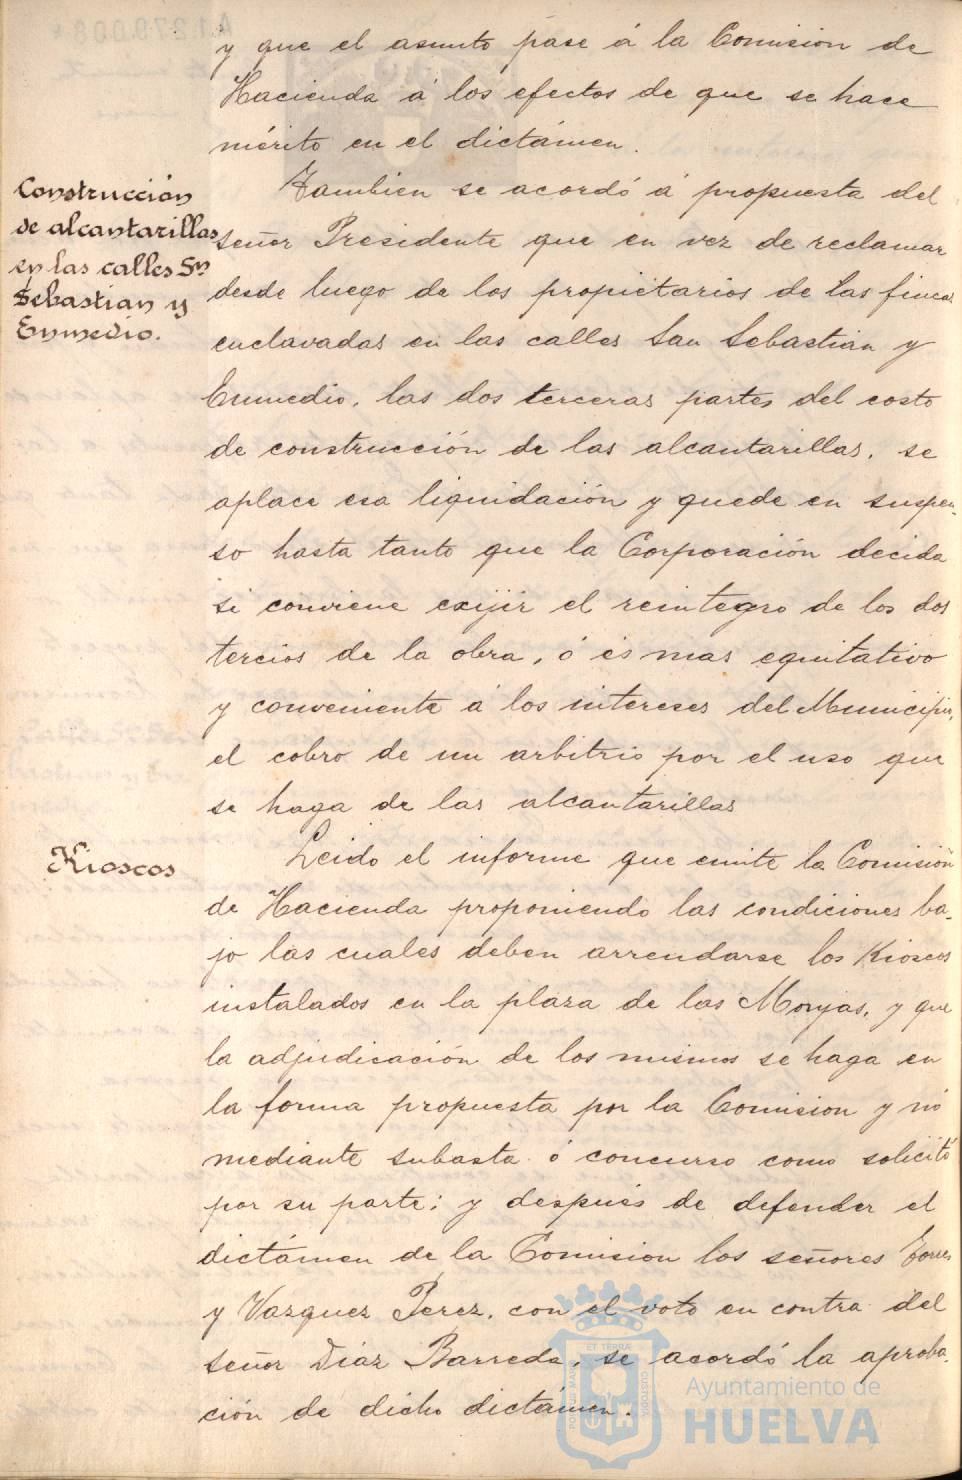 y que el asunto pase á la Comision de
Hacienda á los efectos de que se hace
mérito en el dictámen.
Construcción
de alcantarillas
en las calles Sn
Sebastian y
Enmedio.
Tambien se acordó á propuesta del
señor Presidente que en vez de reclamar
desde luego de los propietarios de las fincas
enclavadas en las calles San Sebastian y
Enmedio, las dos terceras partes del costo
de construcción de las alcantarillas, se
aplace esa liquidación y quede en suspen-
so hasta tanto que la Corporación decida
si conviene exijir el reintegro de los dos
tercios de la obra, ó és mas equitativo
y conveniente á los intereses del Municipio,
el cobro de un arbitrio por el uso que
se haga de las alcantarillas
Kioscos
Leido el informe que emite la Comisión
de Hacienda proponiendo las condiciones ba-
jo las cuales deben arrendarse los Kioscos
instalados en la plaza de las Monjas, y que
la adjudicación de los mismos se haga en
la forma propuesta por la Comision y nó
mediante subasta ó concurso como solicitó
por su parte; y después de defender el
dictámen de la Comision los señores
y Vazquez Perez, con el voto en contra del
señor Diaz Barreda, se acordó la aproba-
ción de dicho dictámen.
ET TERRÆ
PORTUS MARIS
CUSTODIA
Ayuntamiento de
HUELVA